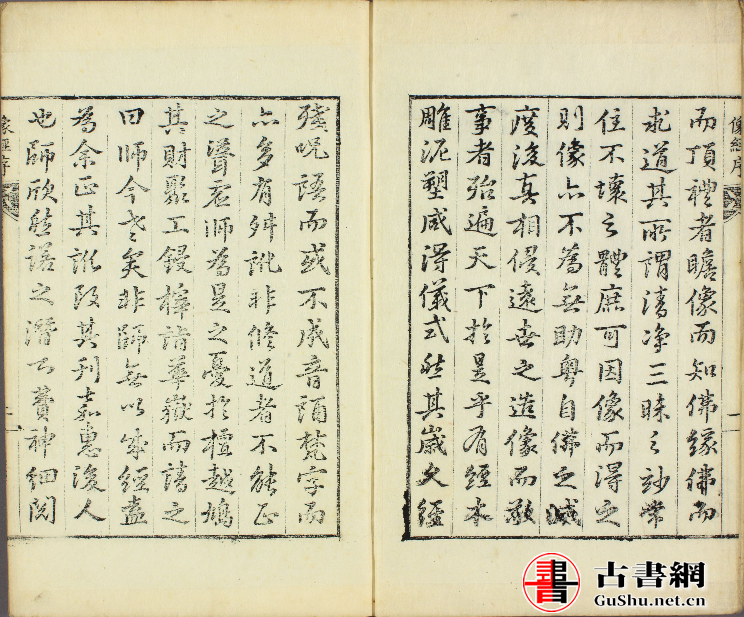 而頂禮者瞻像而知佛緣佛而
求道其所謂清净三昧之妙常
住不壞之體庶可因像而得之
則像亦不為無助粵自佛之滅
度後真相侵遠世之造像而敬
事者殆遍天下於是乎有經本
雕泥塑咸得儀式然其歲久經
殘呪語而或不成音隨梵字而
亦多有舛訛非修道者不能正
之聳宕師為是之憂於檀越鳩
其財聚工鋟梓詣華嶽而請之
曰師今老矣非師無以成經盍
為余正其訛改其刊
也師欣然諾之潛心費神細閱
像經序
像經序
一
古書網
GuShu.net.cn